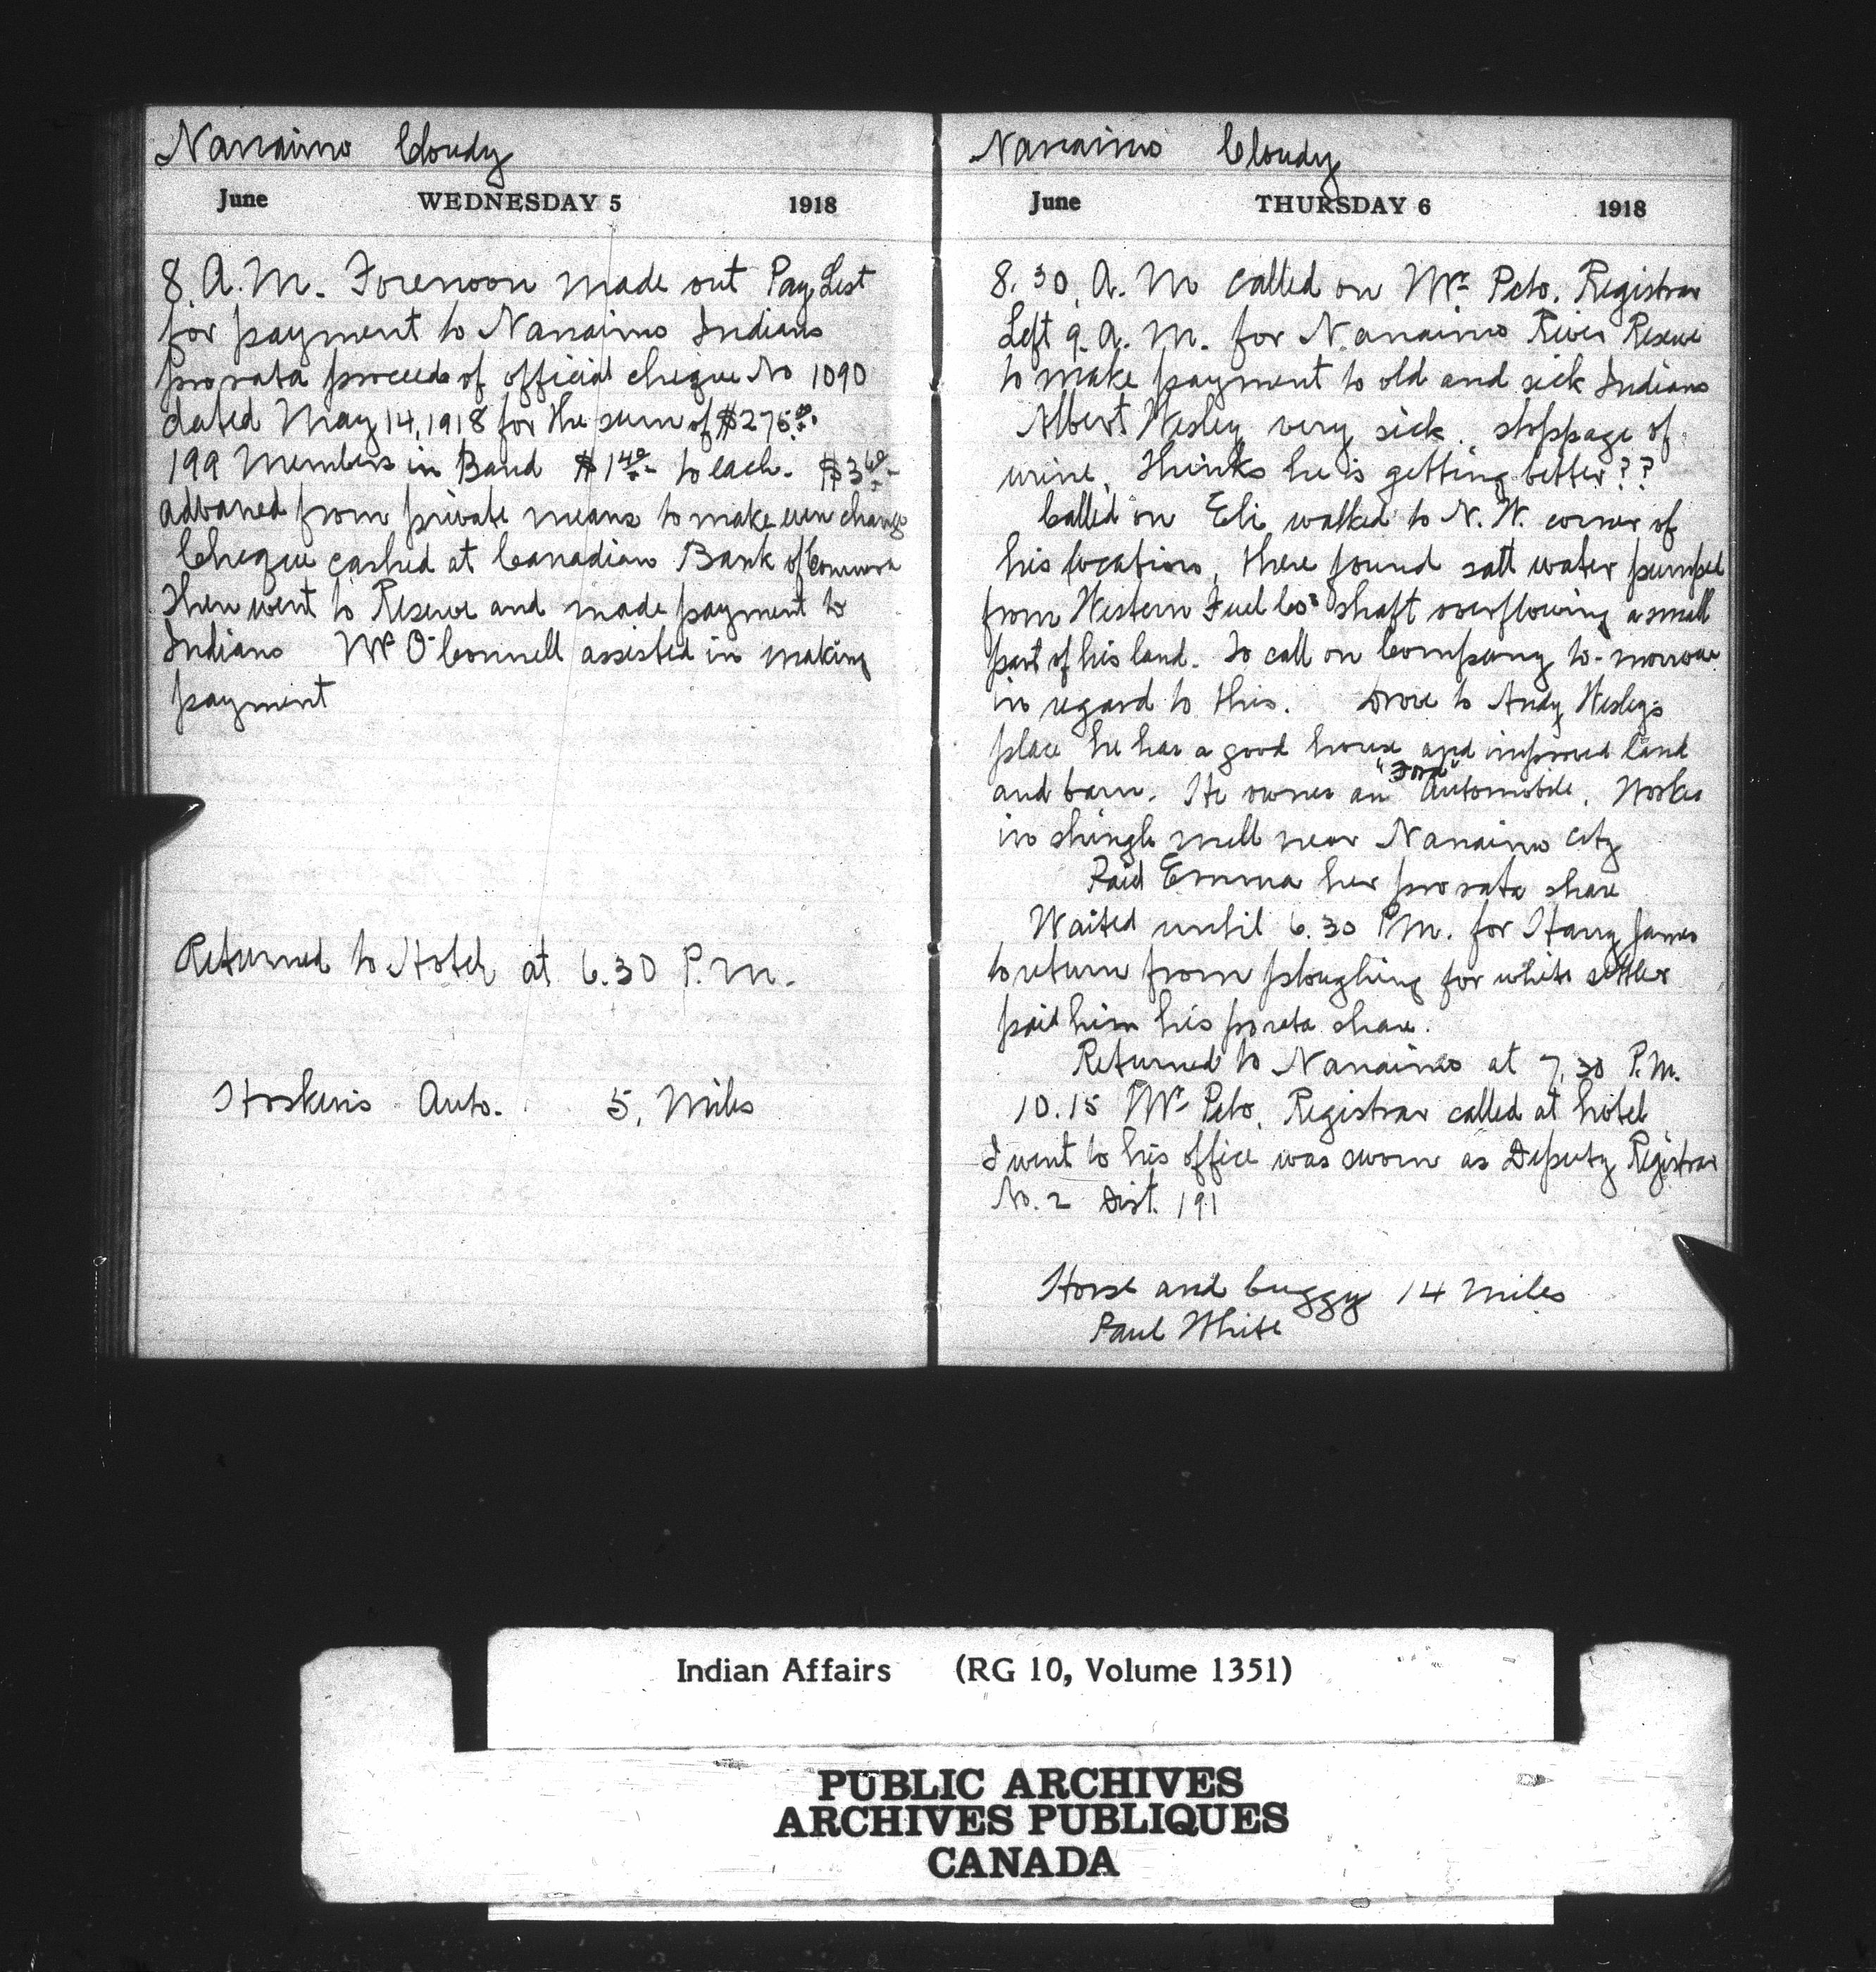 Nanaimo Cloudy
June WEDNESDAY 5 1918
8. A.M. Forenoon made out Pay List
for payment to Nanaimo Indians
pro rata proceeds of official cheque No 1090
dated May 14, 1918 for the sum of $275.00.
199 Members in Band $1.40 to each. $3.60
advanced from private means to make even change
Cheque cashed at Canadian Bank of Commerce
Then went to Reserve and made payment to
Indians Mr O'Connell assisted in making
payment
Returned to Hotel at 6.30 P.M.
Hoskins Auto. 5, Miles
Nanaimo Cloudy
June THURSDAY 6 1918
8.30, A.M called on Mr Peto, Registrar
Left 9. A.M. for Nanaimo River Reserve
to make payment to old and sick Indians
Albert Wesley very sick. stoppage of
urine, thinks he is getting better??
Called on Eli, walked to N.W. corner of
his location, there found salt water pumped
from Western Fuel Cos shaft overflowing a small
part of his land. To call on Company to-morrow
in regard to this. Drove to Andy Wesleys
place he has a good house and improved land
"Ford"
and barn. He owns an Automobile, Works
in shingle mill near Nanaimo City
Paid Emma her pro rata share
Waited until 6.30 P.M. for Harry James
to return from ploughing for white settler
paid him his prorata share.
Returned to Nanaimo at 7.30 P.M.
10.15 Mr Peto, Registrar called at hotel
I went to his office was sworn as Deputy Registrar
No. 2 Dist. 191
Horse and buggy 14 Miles
Paul White
Indian Affairs (RG 10, Volume 1351)
PUBLIC ARCHIVES
ARCHIVES PUBLIQUES
CANADA